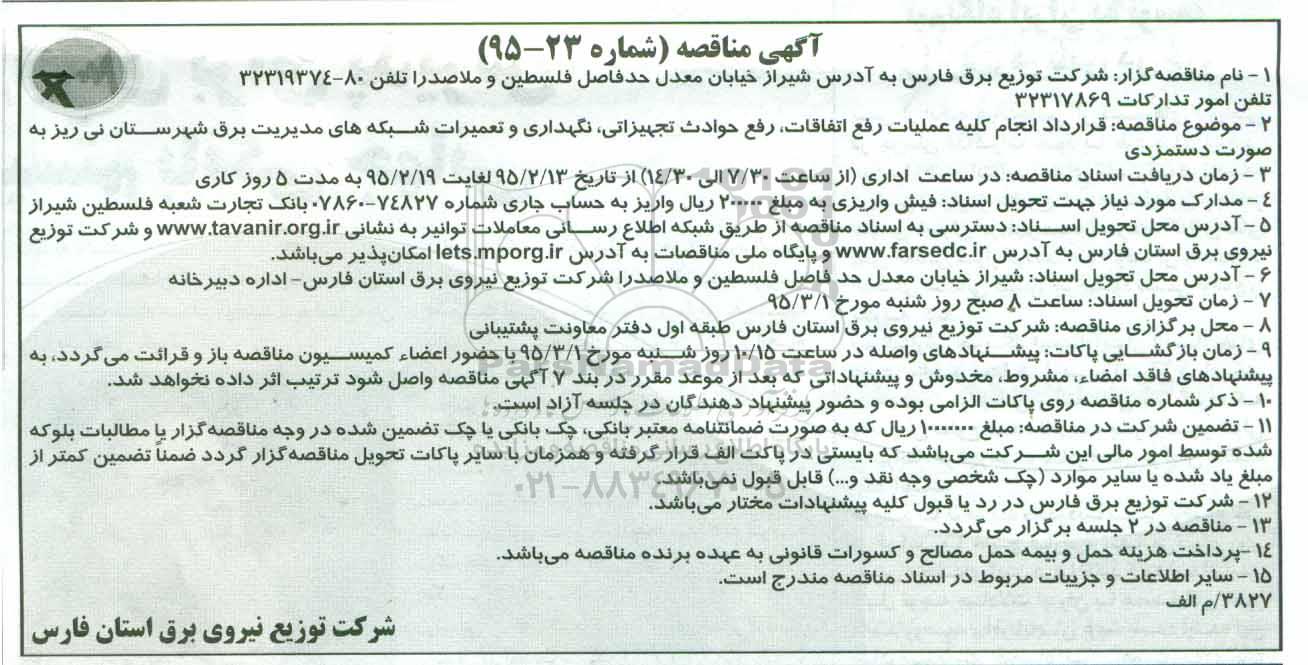 آگهی مناقصه (شماره ۲۳-۹۵)
۱- نام مناقصه‌گزار: شرکت توزیع برق فارس به آدرس شیراز خیابان معدل حدفاصل فلسطین و ملاصدرا تلفن ۸۰-۳۲۳۱۹۳۷۴
تلفن امور تدارکات ۳۲۳۱۷۸۶۹
۲- موضوع مناقصه: قرارداد انجام کلیه عملیات رفع اتفاقات، رفع حوادث تجهیزاتی، نگهداری و تعمیرات شبکه های مدیریت برق شهرستان نی ریز به
صورت دستمزدی
۳- زمان دریافت اسناد مناقصه: در ساعت اداری (از ساعت ۷/۳۰ الی ۱۴/۳۰) از تاریخ ۹۵/۲/۱۳ لغایت ۹۵/۲/۱۹ به مدت ۵ روز کاری
۴- مدارک مورد نیاز جهت تحویل اسناد: فیش واریزی به مبلغ ۲۰۰۰۰۰ ریال واریز به حساب جاری شماره ۷۴۸۲۷-۰۷۸۶۰ بانک تجارت شعبه فلسطین شیراز
۵- آدرس محل تحویل اسناد: دسترسی به اسناد مناقصه از طریق شبکه اطلاع رسانی معاملات توانیر به نشانی www.tavanir.org.ir و شرکت توزیع
نیروی برق استان فارس به آدرس www.farsedc.ir و پایگاه ملی مناقصات به آدرس iets.mporg.ir امکان‌پذیر می‌باشد.
۶- آدرس محل تحویل اسناد: شیراز خیابان معدل حد فاصل فلسطین و ملاصدرا شرکت توزیع نیروی برق استان فارس- اداره دبیرخانه
۷- زمان تحویل اسناد: ساعت ۸ صبح روز شنبه مورخ ۹۵/۳/۱
۸- محل برگزاری مناقصه: شرکت توزیع نیروی برق استان فارس طبقه اول دفتر معاونت پشتیبانی
۹- زمان بازگشایی پاکات: پیشنهادهای واصله در ساعت ۱۰/۱۵ روز شنبه مورخ ۹۵/۳/۱ با حضور اعضاء کمیسیون مناقصه باز و قرائت می‌گردد، به
پیشنهادهای فاقد امضاء، مشروط، مخدوش و پیشنهاداتی که بعد از موعد مقرر در بند ۷ آگهی مناقصه واصل شود ترتیب اثر داده نخواهد شد.
۱۰- ذکر شماره مناقصه روی پاکات الزامی بوده و حضور پیشنهاد دهندگان در جلسه آزاد است.
۱۱- تضمین شرکت در مناقصه: مبلغ ۱۰۰۰۰۰۰۰ ریال که به صورت ضمانتنامه معتبر بانکی، چک بانکی یا چک تضمین شده در وجه مناقصه‌گزار یا مطالبات بلوکه
شده توسط امور مالی این شرکت می‌باشد که بایستی در پاکت الف قرار گرفته و همزمان با سایر پاکات تحویل مناقصه‌گزار گردد ضمناً تضمین کمتر از
مبلغ یاد شده یا سایر موارد (چک شخصی وجه نقد و...) قابل قبول نمی‌باشد.
۱۲- شرکت توزیع برق فارس در رد یا قبول کلیه پیشنهادات مختار می‌باشد.
۱۳- مناقصه در ۲ جلسه برگزار می‌گردد.
۱۴- پرداخت هزینه حمل و بیمه حمل مصالح و کسورات قانونی به عهده برنده مناقصه می‌باشد.
۱۵- سایر اطلاعات و جزییات مربوط در اسناد مناقصه مندرج است.
۳۸۲۷/م الف
شرکت توزیع نیروی برق استان فارس
ParsNamadData